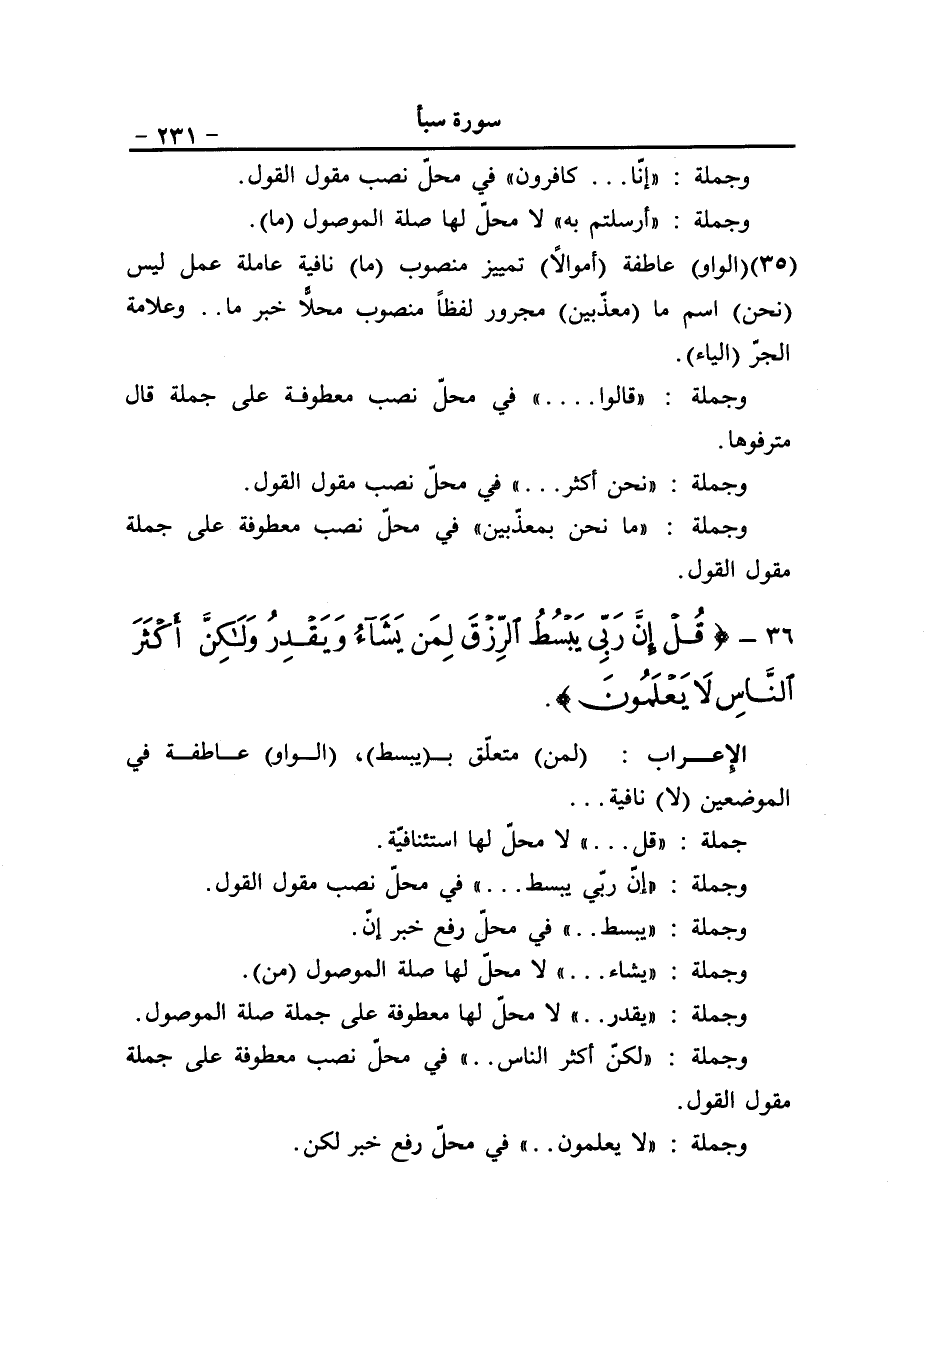 سورة سبأ
- ٢٣١ -
وجملة : «إنّا... كافرون» في محلّ نصب مقول القول.
وجملة : «أرسلتم به» لا محلّ لها صلة الموصول (ما).
(٣٥)(الواو) عاطفة (أموالاً) تمييز منصوب (ما) نافية عاملة عمل ليس
(نحن) اسم ما (معذّبين) مجرور لفظاً منصوب محلاًّ خبر ما.. وعلامة
الجرّ (الياء).
وجملة : «قالوا....» في محلّ نصب معطوفة على جملة قال
مترفوها.
وجملة : «نحن أكثر...» في محلّ نصب مقول القول.
وجملة : «ما نحن بمعذّبين» في محلّ نصب معطوفة على جملة
مقول القول.
٣٦ - ﴿ قُلْ إِنَّ رَبِّي يَبْسُطُ ٱلرِّزْقَ لِمَن يَشَآءُ وَيَقْدِرُ وَلَٰكِنَّ أَكْثَرَ
ٱلنَّاسِ لَا يَعْلَمُونَ ﴾.
الإعراب : (لمن) متعلّق بـ(يبسط)، (الواو) عاطفة في
الموضعين (لا) نافية...
جملة : «قل...» لا محلّ لها استئنافيّة.
وجملة : «إنّ ربّي يبسط...» في محلّ نصب مقول القول.
وجملة : «يبسط..» في محلّ رفع خبر إنّ.
وجملة : «يشاء...» لا محلّ لها صلة الموصول (من).
وجملة : «يقدر..» لا محلّ لها معطوفة على جملة صلة الموصول.
وجملة : «لكنّ أكثر الناس..» في محلّ نصب معطوفة على جملة
مقول القول.
وجملة : «لا يعلمون..» في محلّ رفع خبر لكن.